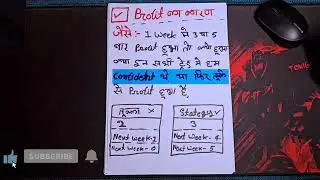 Profit का कारण
जैसे:- 1 week में 3 या 5
बार Profit हुआ तो क्यों हुआ
क्या इन सभी ट्रेड में हम
Confident थे या फिर तुक्के
से Profit हुआ है
तुक्का ×
2
Next week - 2
Next week - 0
Strategy ✓
3
Next week - 4
Next week - 5
SUBSCRIBE